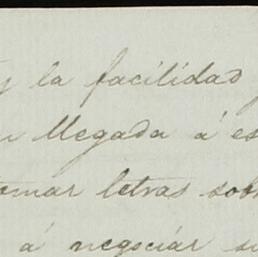 y la facilidad
llegada á es
tomar letras sob
á negociar su